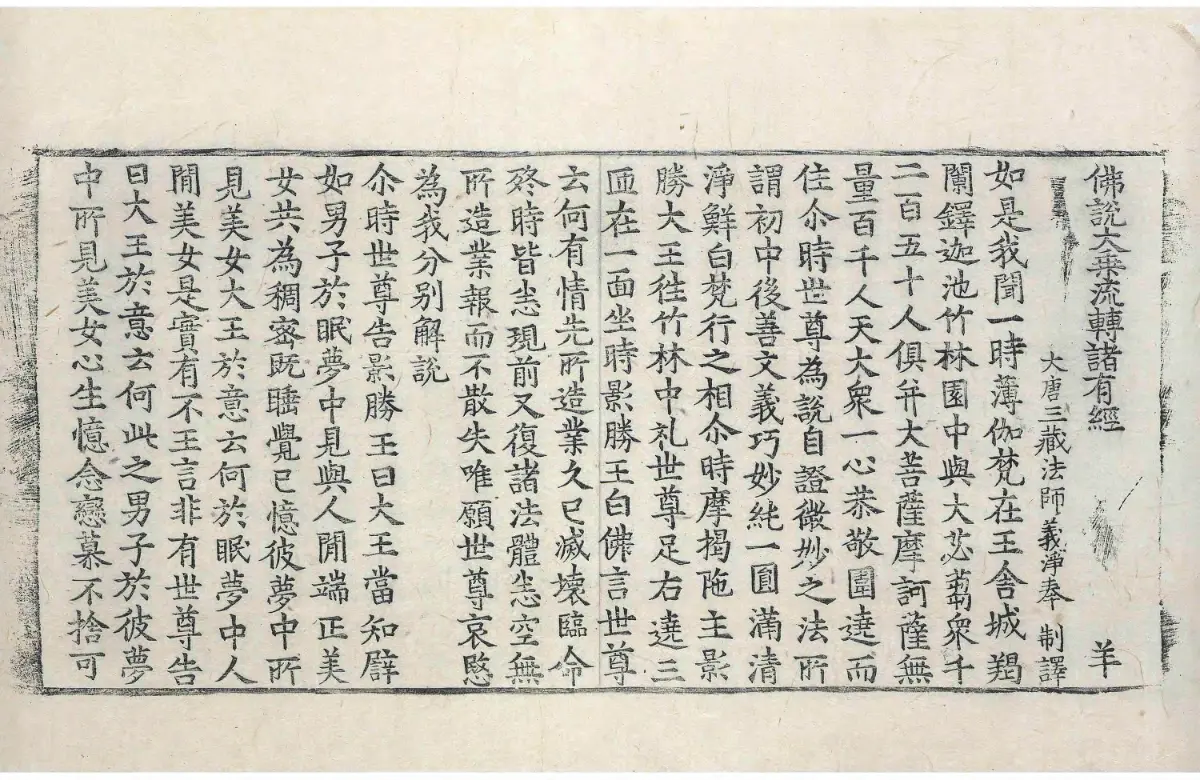 佛說大乗流轉諸有經 羊
大唐三藏法師義淨奉 制譯
如是我聞一時薄伽梵在王舍城羯
闌鐸迦池竹林園中與大苾蒭衆千
二百五十人俱并大菩薩摩訶薩無
量百千人天大衆一心恭敬圍遶而
住尒時世尊為說自證微妙之法所
謂初中後善文義巧妙純一圓滿清
淨鮮白梵行之相尒時摩揭陁主影
勝大王往竹林中礼世尊足右遶三
匝在一面坐時影勝王白佛言世尊
云何有情先所造業久已滅壞臨命
終時皆悉現前又復諸法體悉空無
所造業報而不散失唯願世尊哀愍
為我分别解說
尒時世尊告影勝王曰大王當知譬
如男子於眠夢中見與人閒端正美
女共為稠密旣睡覺已憶彼夢中所
見美女大王於意云何於眠夢中人
閒美女是實有不王言非有世尊告
曰大王於意云何此之男子於彼夢
中所見美女心生憶念戀慕不捨可